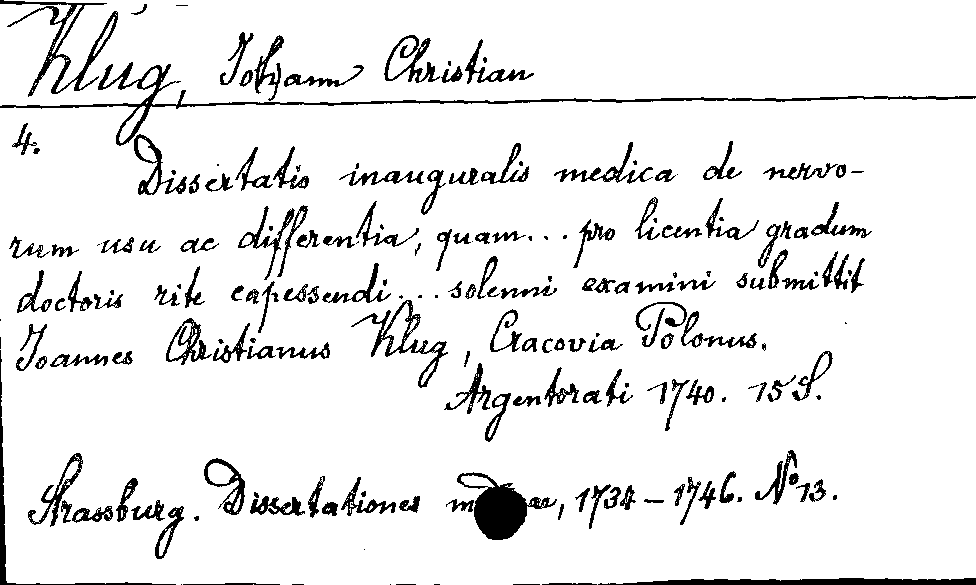 Klug, Johann Christian
4.
Dissertatio inauguralis medica de nervo-
rum usu ac differentia, quam... pro licentia gradum
doctoris rite capessendi... solenni examini submittit
Joannes Christianus Klug, Cracovia Polonus.
Argentorati 1740. 15 S.
Strassburg. Dissertationes 1734-1746. No 13.